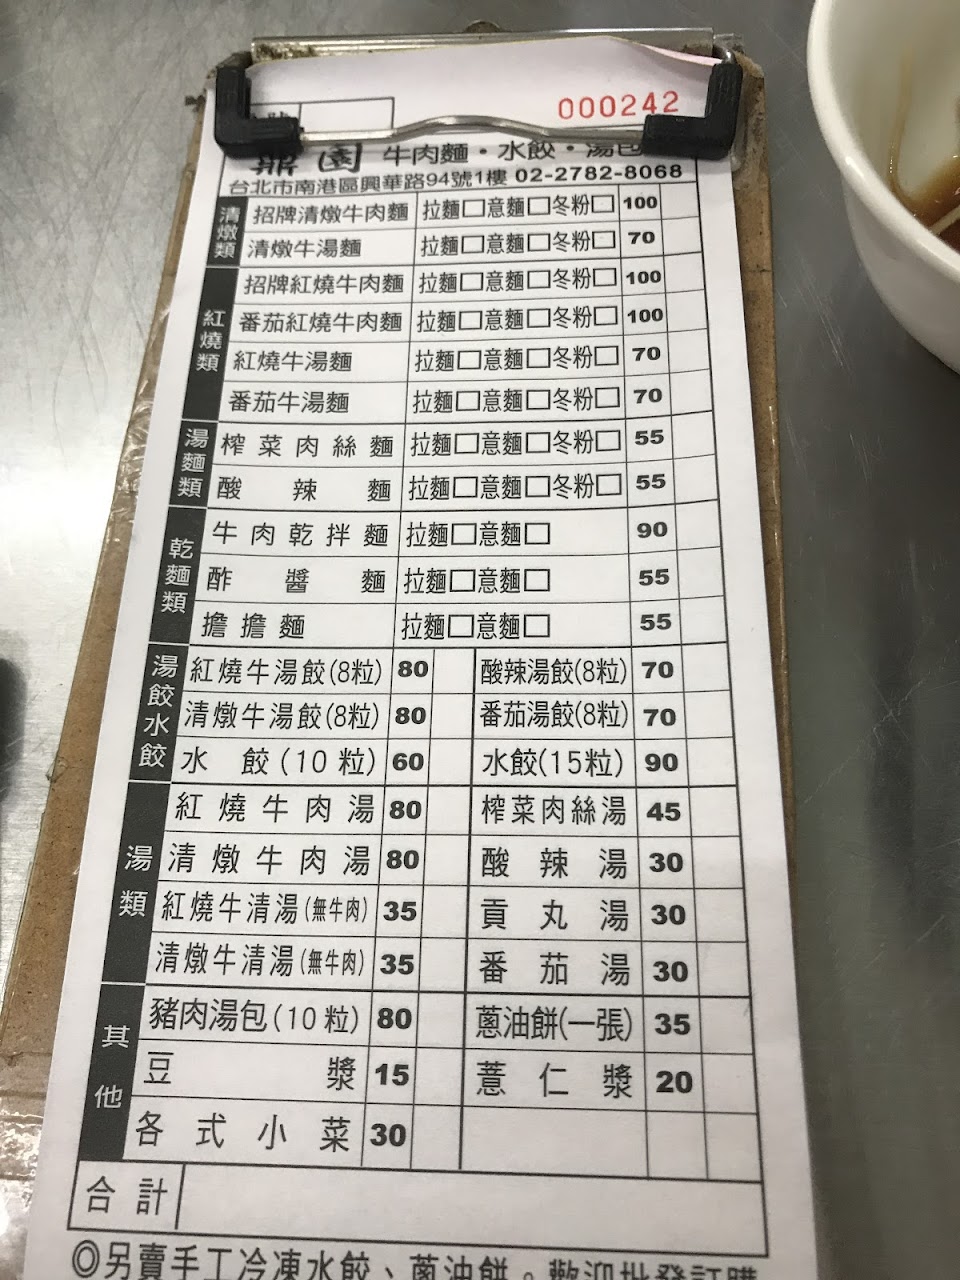 000242
鼎園 牛肉麵・水餃・湯包
台北市南港區興華路94號1樓 02-2782-8068
清燉類
招牌清燉牛肉麵 拉麵□意麵□冬粉□ 100
清燉牛湯麵 拉麵□意麵□冬粉□ 70
紅燒類
招牌紅燒牛肉麵 拉麵□意麵□冬粉□ 100
番茄紅燒牛肉麵 拉麵□意麵□冬粉□ 100
紅燒牛湯麵 拉麵□意麵□冬粉□ 70
番茄牛湯麵 拉麵□意麵□冬粉□ 70
湯麵類
榨菜肉絲麵 拉麵□意麵□冬粉□ 55
酸辣麵 拉麵□意麵□冬粉□ 55
乾麵類
牛肉乾拌麵 拉麵□意麵□ 90
酢醬麵 拉麵□意麵□ 55
擔擔麵 拉麵□意麵□ 55
湯餃水餃
紅燒牛湯餃(8粒) 80 酸辣湯餃(8粒) 70
清燉牛湯餃(8粒) 80 番茄湯餃(8粒) 70
水餃(10粒) 60 水餃(15粒) 90
湯類
紅燒牛肉湯 80 榨菜肉絲湯 45
清燉牛肉湯 80 酸辣湯 30
紅燒牛清湯(無牛肉) 35 貢丸湯 30
清燉牛清湯(無牛肉) 35 番茄湯 30
其他
豬肉湯包(10粒) 80 蔥油餅(一張) 35
豆漿 15 薏仁漿 20
各式小菜 30
合計
◎另賣手工冷凍水餃、蔥油餅。歡迎批發訂購